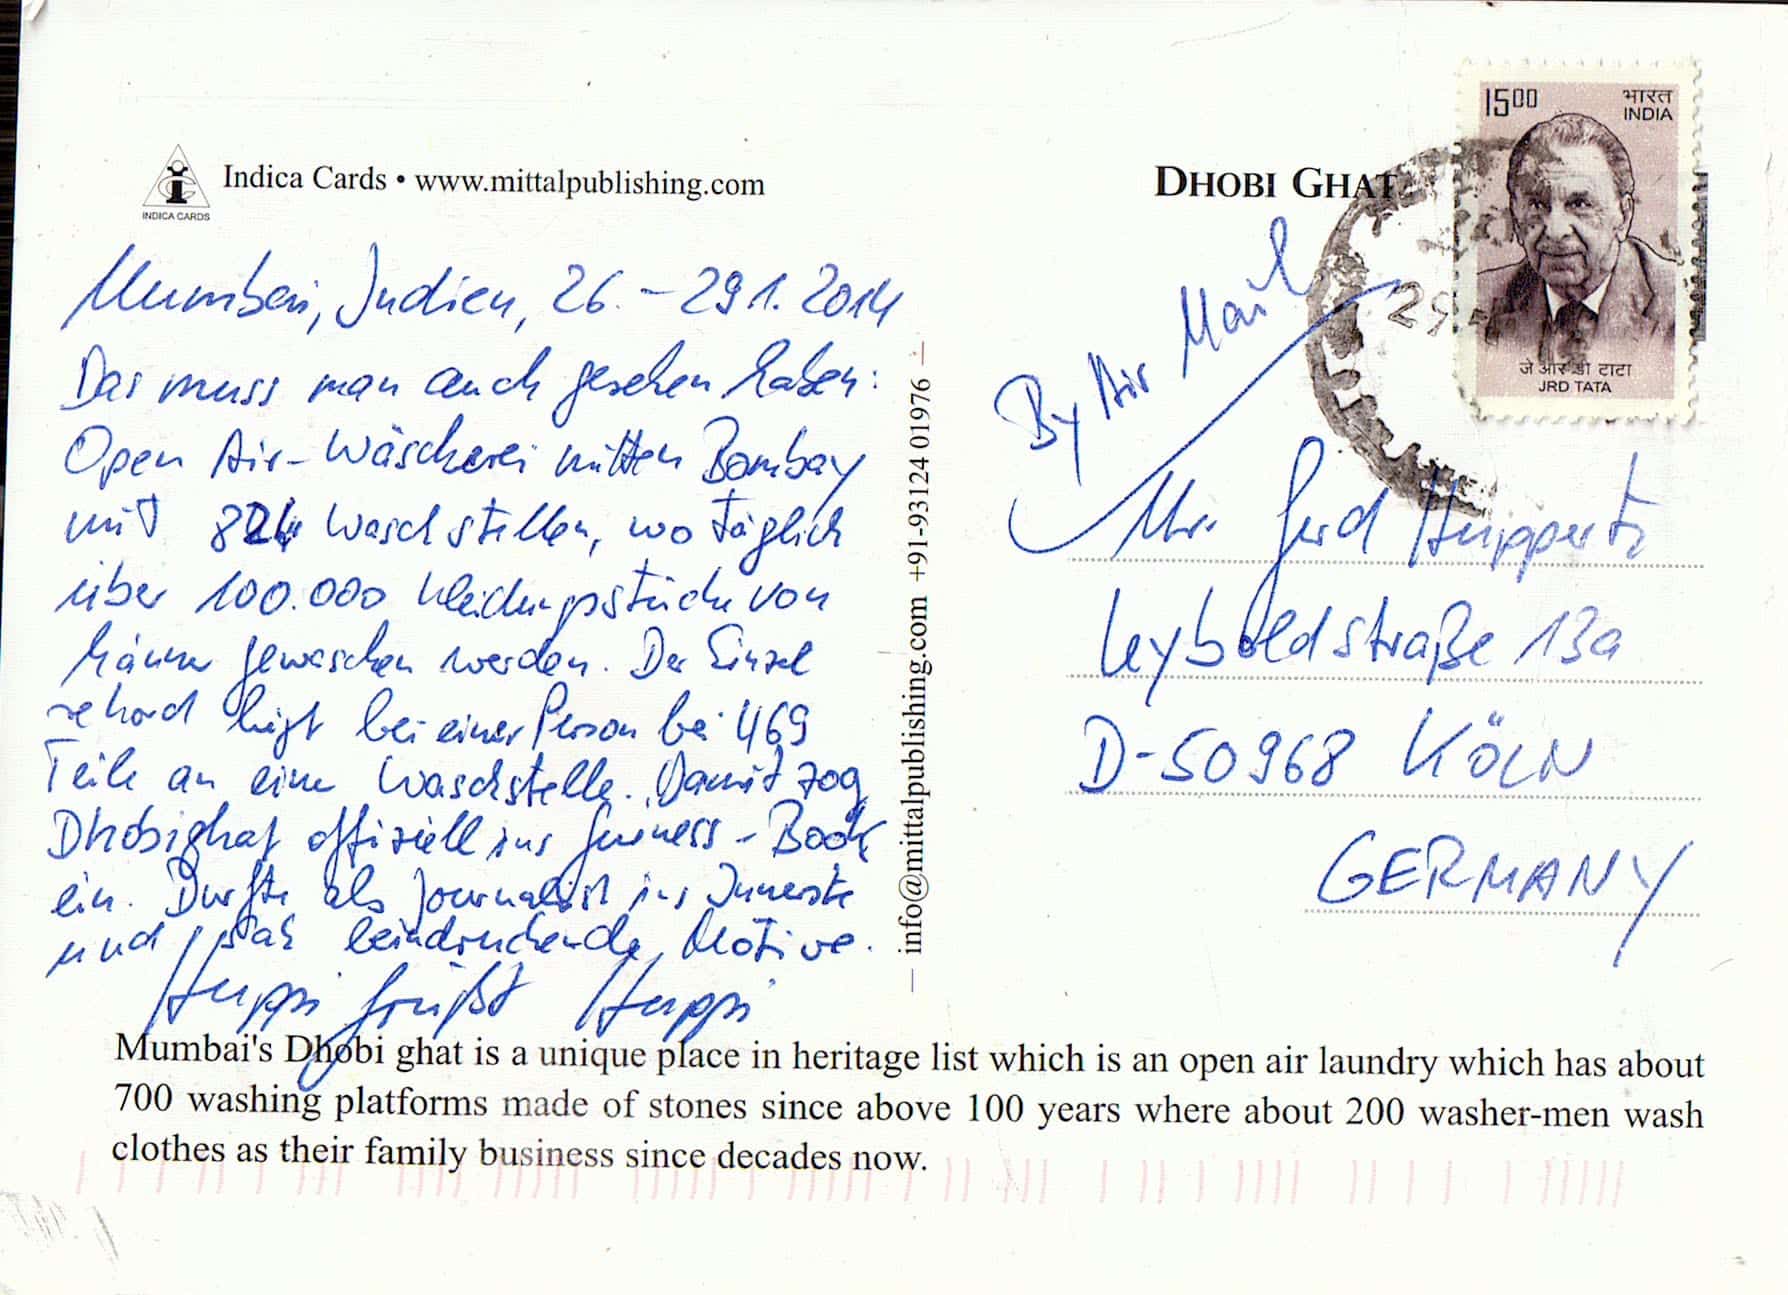 INDICA CARDS
Indica Cards • www.mittalpublishing.com
Mumbai, Indien, 26. – 29 1. 2014
Das muss man auch gesehen haben:
Open Air-Wäscherei mitten Bombay
mit Waschstellen, wo täglich
über 100.000 Kleidungsstücke von
Männer gewaschen werden. Der Einzel
rekord liegt bei einer Person bei 469
Teile an eine Waschstelle. Damit zog
Dhobighat offiziell ins Guiness-Book
ein. Durfte als Journalist ins Innerste
und sah beindruckende Motive.
Huppi grüßt Huppi
— info@mittalpublishing.com +91-93124 01976 —
DHOBI GHAT
1500 भारत
INDIA
जे आर डी टाटा
JRD TATA
29
By Air Mail
Mr. Gerd Huppertz
Leyboldstraße 13a
D-50968 KÖLN
GERMANY
Mumbai's Dhobi ghat is a unique place in heritage list which is an open air laundry which has about
700 washing platforms made of stones since above 100 years where about 200 washer-men wash
clothes as their family business since decades now.